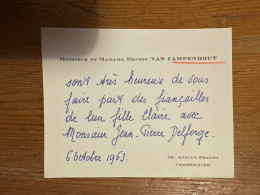 Monsieur et Madame Ernest VAN CAMPENHOUT
sont très heureux de vous
faire part des fiançailles
de leur fille Claire, avec
Monsieur Jean-Pierre Delforge.
6 Octobre 1963.